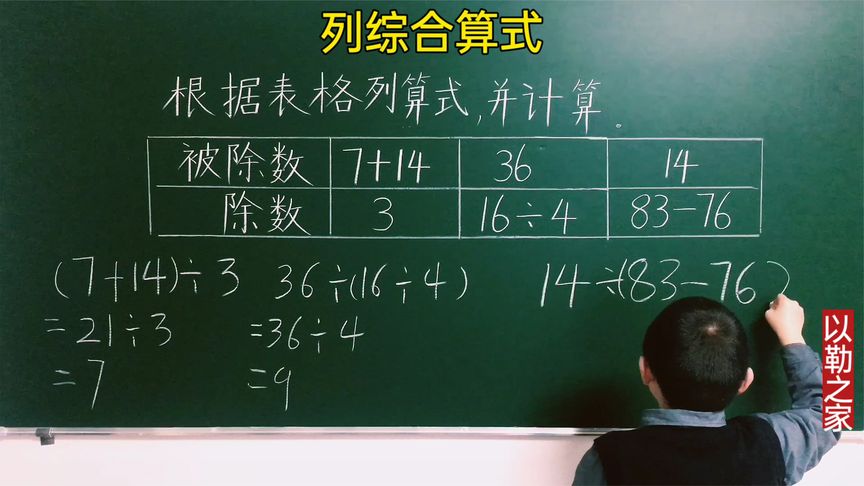 列综合算式
根据表格列算式,并计算.
被除数 7+14 36 14
除数 3 16÷4 83-76
(7+14)÷3 36÷(16÷4) 14÷(83-76)
=21÷3 =36÷4
=7 =9
以勒之家